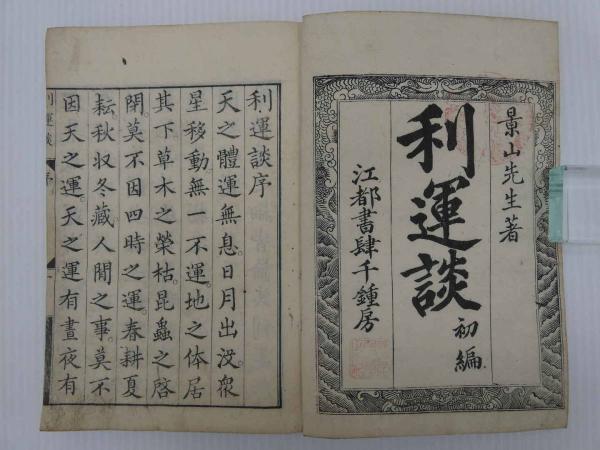 景山先生著
利運談
初編
江都書肆千鍾房
利運談序
天之體運無息。日月出没衆
星移動無一不運。地之体居
其下草木之榮枯。昆蟲之啓
閉。莫不因四時之運。春耕夏
耘。秋収冬藏。人間之事。莫不
因天之運。天之運有晝夜有
利運談 序